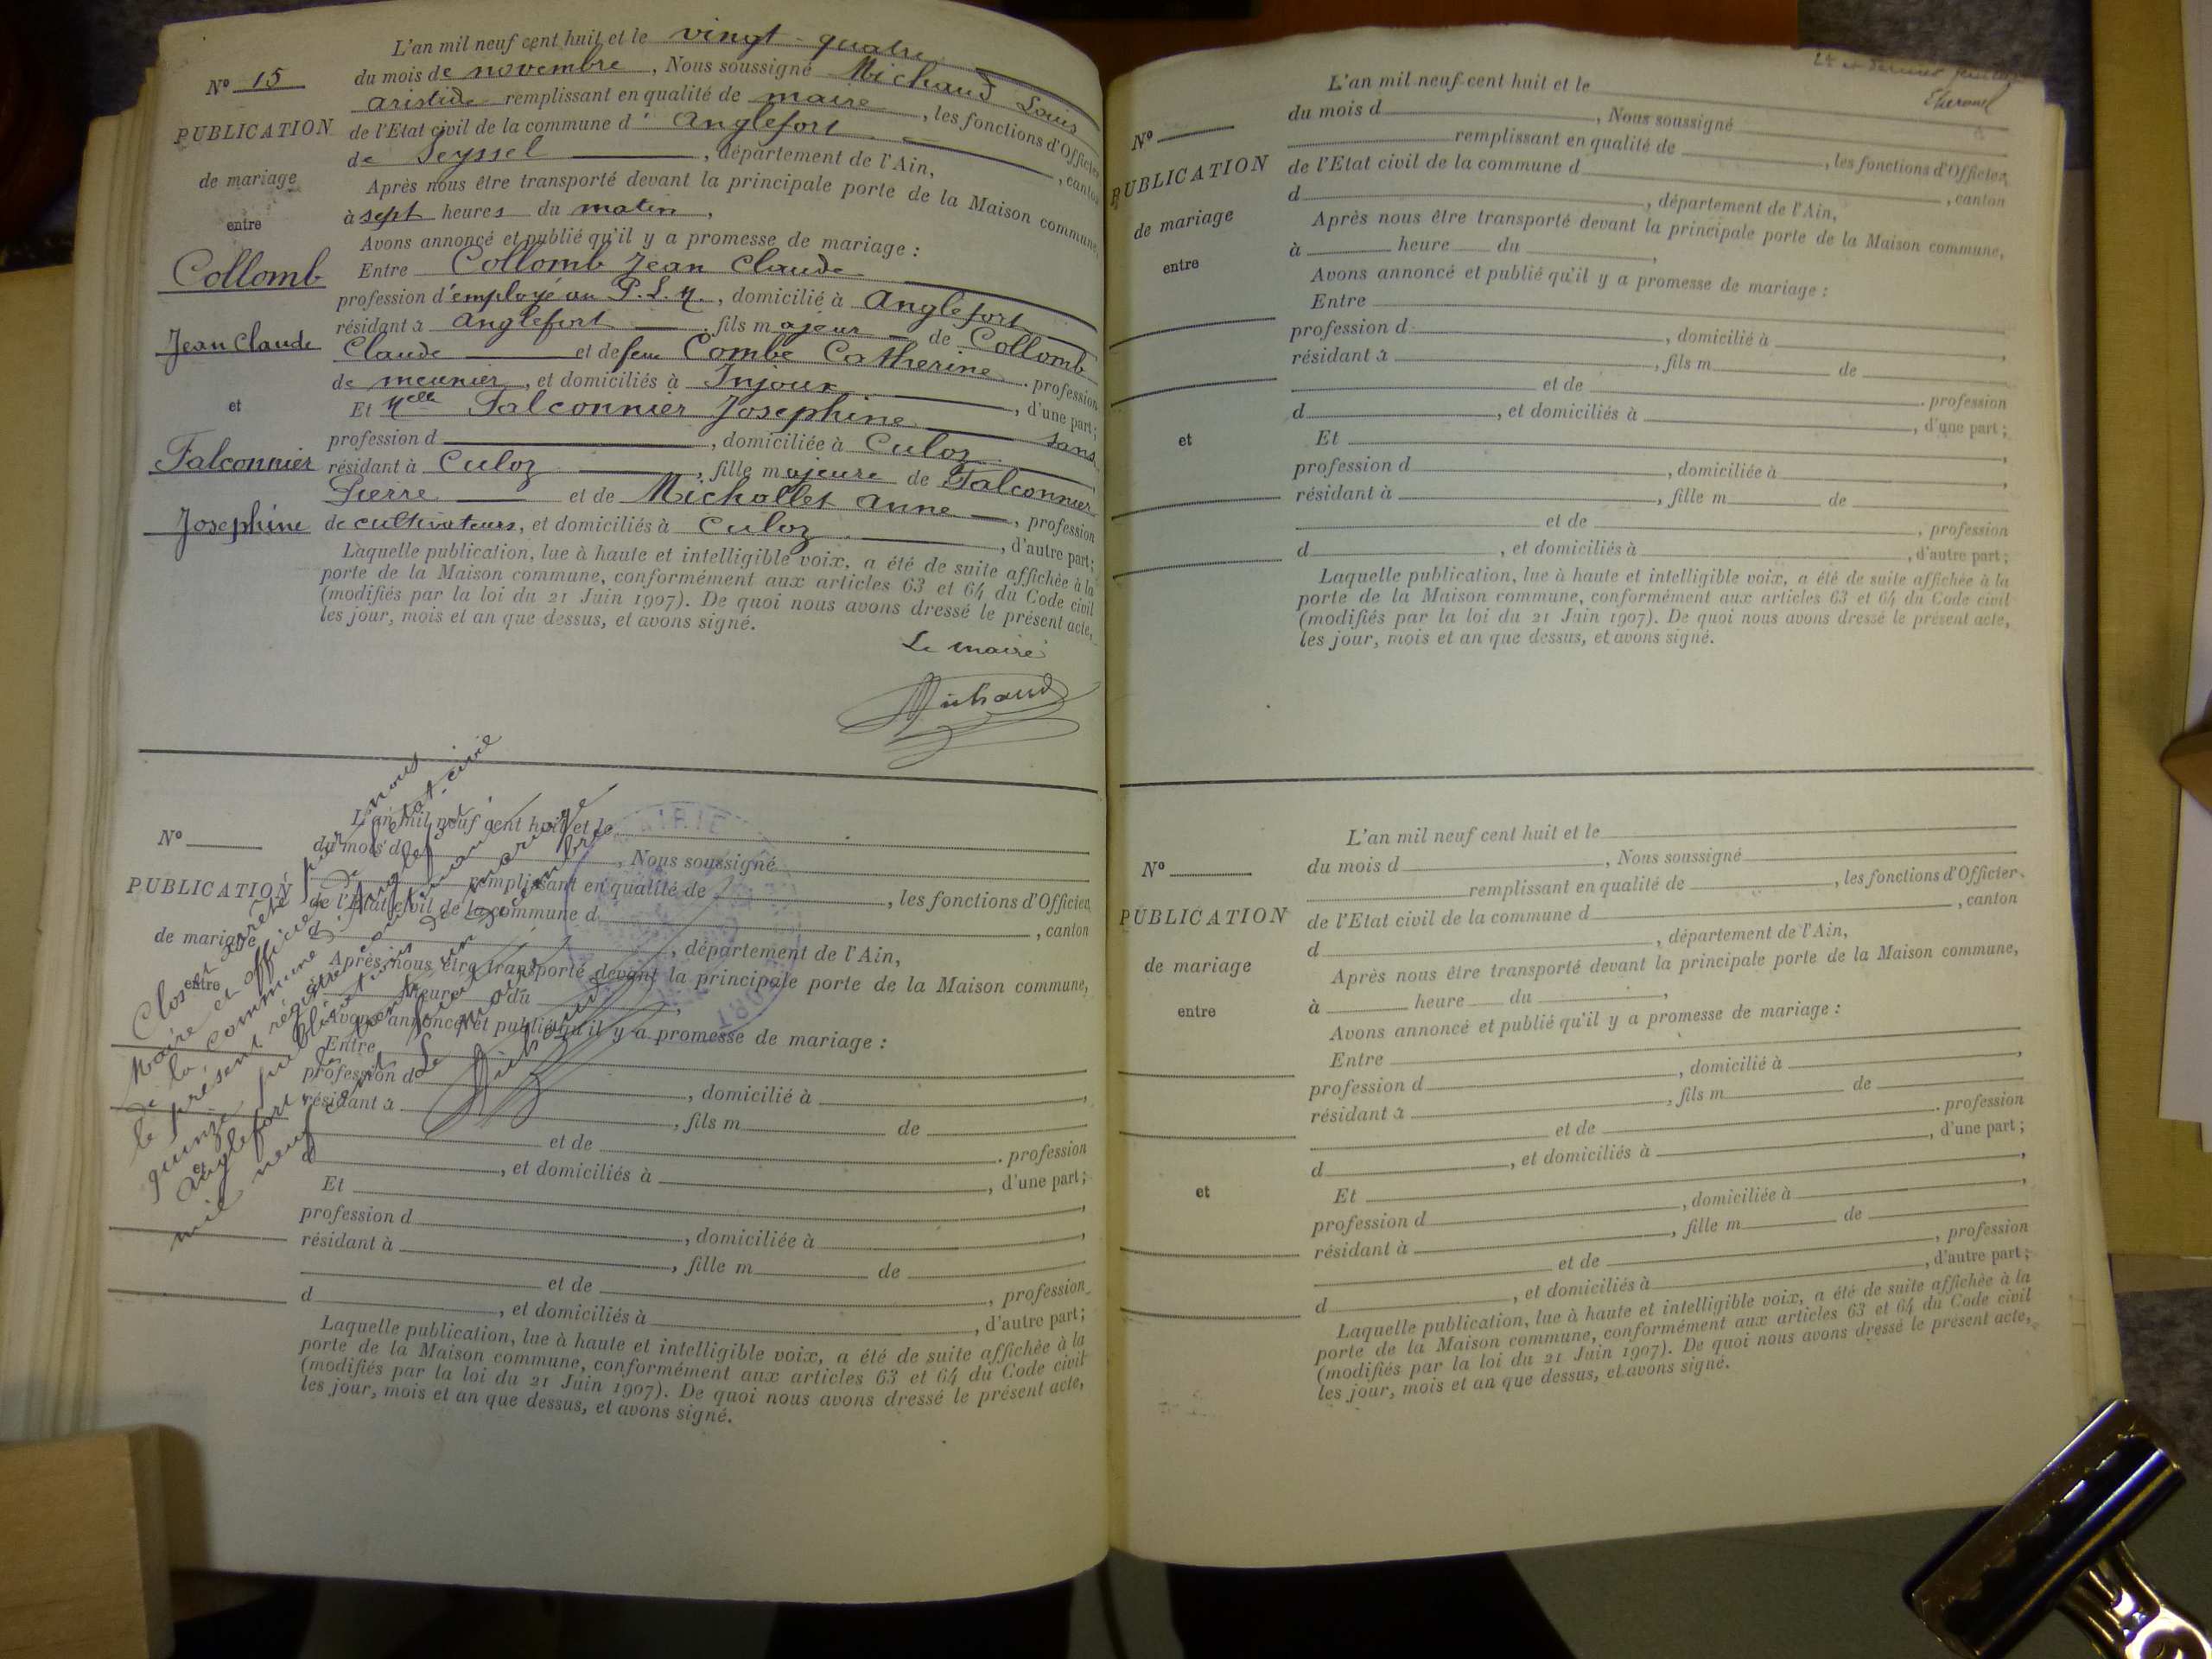 L'an mil neuf cent huit et le vingt-quatre
Nº 15
du mois de novembre, Nous soussigné Michaud Louis
aristide remplissant en qualité de maire, les fonctions d'Officier
PUBLICATION
de l'Etat civil de la commune d'Anglefort, canton
de Seyssel, département de l'Ain,
de mariage
Après nous être transporté devant la principale porte de la Maison commune,
à sept heures du matin,
entre
Avons annoncé et publié qu'il y a promesse de mariage :
Collomb
Entre Collomb Jean Claude
profession d'employé au P.L.M., domicilié à Anglefort
résidant à Anglefort, fils majeur de Collomb
Jean Claude
Claude et de feue Combe Catherine. profession
de meunier, et domiciliés à Injoux, d'une part;
et
Et Melle Falconnier Josephine sans
profession d, domiciliée à Culoz
Falconnier
résidant à Culoz, fille majeure de Falconnier
Pierre et de Michallet Anne, profession
Josephine
de cultivateurs, et domiciliés à Culoz, d'autre part;
Laquelle publication, lue à haute et intelligible voix, a été de suite affichée à la
porte de la Maison commune, conformément aux articles 63 et 64 du Code civil
(modifiés par la loi du 21 Juin 1907). De quoi nous avons dressé le présent acte,
les jour, mois et an que dessus, et avons signé.
Le maire
Michaud
L'an mil neuf cent huit et le
Nº
du mois d, Nous soussigné
remplissant en qualité de, les fonctions d'Officier
PUBLICATION
de l'Etat civil de la commune d, canton
d, département de l'Ain,
de mariage
Après nous être transporté devant la principale porte de la Maison commune,
à heure du,
entre
Avons annoncé et publié qu'il y a promesse de mariage :
Entre
profession d, domicilié à,
résidant à, fils m de
et de. profession
d, et domiciliés à, d'une part;
et
Et,
profession d, domiciliée à,
résidant à, fille m de
et de, profession
d, et domiciliés à, d'autre part;
Laquelle publication, lue à haute et intelligible voix, a été de suite affichée à la
porte de la Maison commune, conformément aux articles 63 et 64 du Code civil
(modifiés par la loi du 21 Juin 1907). De quoi nous avons dressé le présent acte,
les jour, mois et an que dessus, et avons signé.
Clos et arrêté par nous
Maire et officier de l'état-civil
de la commune d'Anglefort
le présent registre contenant
quinze publications de mariage
Anglefort le trente un décembre
mil neuf cent huit
Le maire
Michaud
MAIRIE
24 et dernier feuillet
L'an mil neuf cent huit et le
Nº
du mois d, Nous soussigné
remplissant en qualité de, les fonctions d'Officier
PUBLICATION
de l'Etat civil de la commune d, canton
d, département de l'Ain,
de mariage
Après nous être transporté devant la principale porte de la Maison commune,
à heure du,
entre
Avons annoncé et publié qu'il y a promesse de mariage :
Entre
profession d, domicilié à,
résidant à, fils m de
et de. profession
d, et domiciliés à, d'une part;
et
Et,
profession d, domiciliée à,
résidant à, fille m de
et de, profession
d, et domiciliés à, d'autre part;
Laquelle publication, lue à haute et intelligible voix, a été de suite affichée à la
porte de la Maison commune, conformément aux articles 63 et 64 du Code civil
(modifiés par la loi du 21 Juin 1907). De quoi nous avons dressé le présent acte,
les jour, mois et an que dessus, et avons signé.
L'an mil neuf cent huit et le
Nº
du mois d, Nous soussigné
remplissant en qualité de, les fonctions d'Officier
PUBLICATION
de l'Etat civil de la commune d, canton
d, département de l'Ain,
de mariage
Après nous être transporté devant la principale porte de la Maison commune,
à heure du,
entre
Avons annoncé et publié qu'il y a promesse de mariage :
Entre
profession d, domicilié à,
résidant à, fils m de
et de. profession
d, et domiciliés à, d'une part;
et
Et,
profession d, domiciliée à,
résidant à, fille m de
et de, profession
d, et domiciliés à, d'autre part;
Laquelle publication, lue à haute et intelligible voix, a été de suite affichée à la
porte de la Maison commune, conformément aux articles 63 et 64 du Code civil
(modifiés par la loi du 21 Juin 1907). De quoi nous avons dressé le présent acte,
les jour, mois et an que dessus, et avons signé.